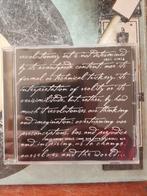 revolutionary art is not determined
by its avant-garde content nor its
formal or technical trickery, its
interpretation of reality or its
original style, but, rather, by how
much it revolutionizes our thinking
and imagination; overturning our
preconceptions, bias and prejudice
and inspiring us to change
ourselves and the world.